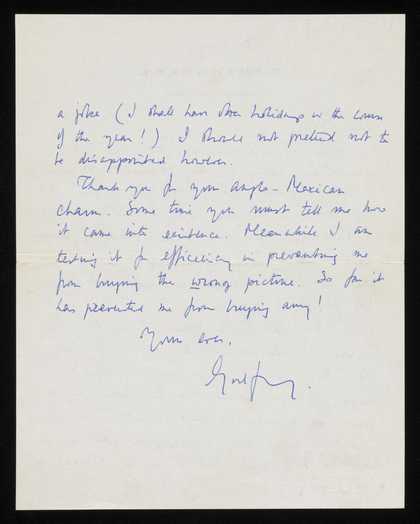 a joke (I shall have other holidays in the course
of the year!) I should not pretend not to
be disappointed however.
Thank you for your Anglo-Mexican
charm. Some time you must tell me how
it came into existence. Meanwhile I am
testing it for efficiency in preventing me
from buying the wrong picture. So far it
has prevented me from buying any!
Yours ever,
Godfrey.